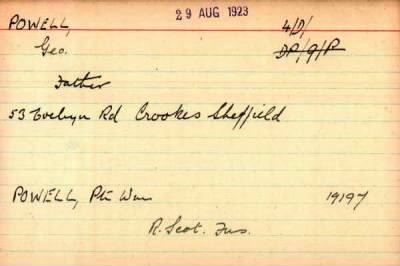 29 AUG 1923
POWELL, 4/D/
Geo. DP/9/P
Father
53 Evelyn Rd Crookes Sheffield
POWELL, Pte Wm 19197
R. Scot. Fus.